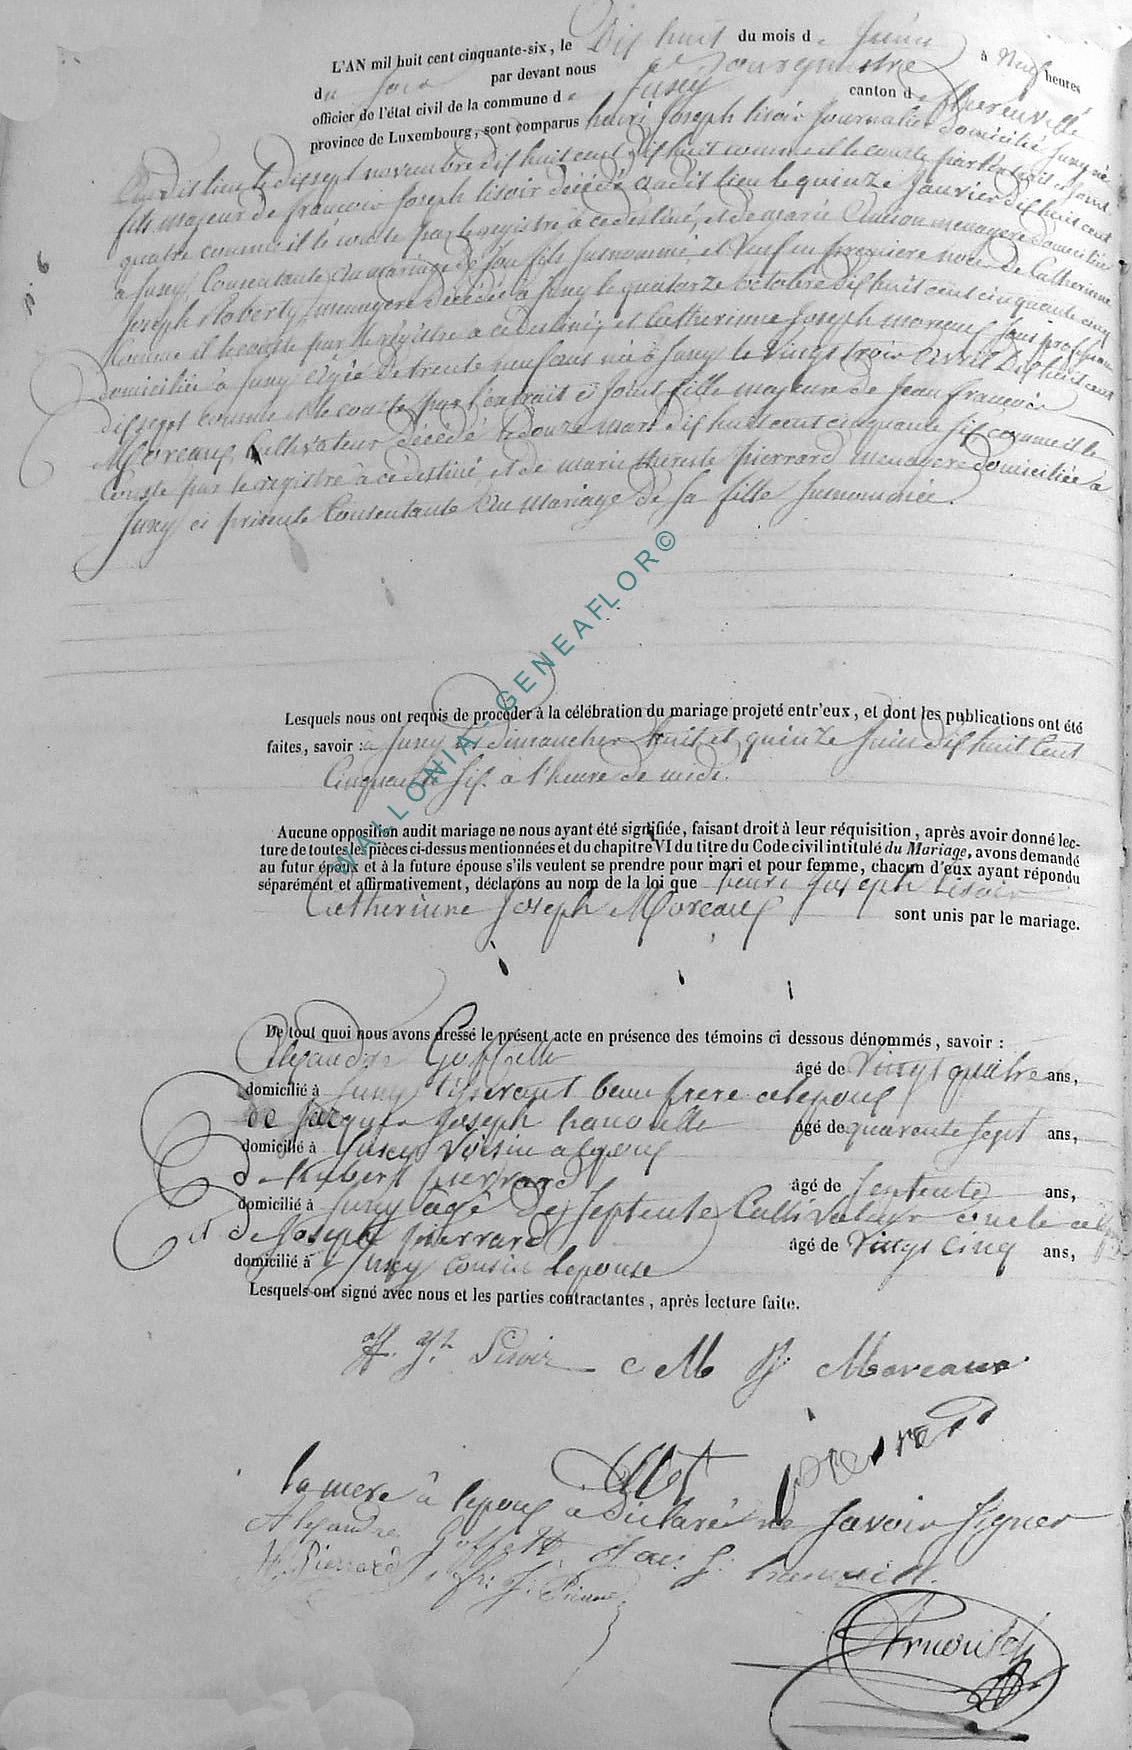 L'AN mil huit cent cinquante-six, le Dix huit du mois de Juin à Neuf heures
du Soir par devant nous Bourgmestre
officier de l'état civil de la commune de Jusey canton de thereuville
province de Luxembourg, sont comparus henri Joseph lisoir Journalier domicilié Juny né
audit lieu le dixsept novembre dix huit cent dix huit comme il le conste par l'extrait ci Joint
fils majeur de francois Joseph lisoir décédé audit lieu le quinze Janvier dix huit cent
quatre comme il le conste par le registre à ce destiné, et de marie menagere domiciliée
à Juny Consentante au mariage de son fils susnommé et veuf en premiere noce de Catherinne
Joseph Roberty menagere décédée à Juny le quatorze octobre dix huit cent cinquante cinq
Comme il le conste par le régistre a ce destiné; et Catherinne Joseph moreaux sans profession
domiciliée à Juny agée de trente neuf ans née à Juny le vingt trois avril dix huit cent
dixsept comme il le conste par l'extrait ci Joint fille majeure de Jean françois
Moreaux Cultivateur décédé le douze mars dix huit cent cinquante six comme il le
Conste par le registre à ce destiné, et de marie thereste pierrard menagere domiciliée à
Juny ci présente Consentante au mariage de sa fille susnommée.
n. 6
Lesquels nous ont requis de procéder à la célébration du mariage projeté entr'eux, et dont les publications ont été
faites, savoir : à Juny les Dimanches huit et quinze Juin dix huit Cent
Cinquante six. à l'heure de midi.
Aucune opposition audit mariage ne nous ayant été signifiée, faisant droit à leur réquisition, après avoir donné lec-
ture de toutes les pièces ci-dessus mentionnées et du chapitre VI du titre du Code civil intitulé du Mariage, avons demandé
au futur époux et à la future épouse s'ils veulent se prendre pour mari et pour femme, chacun d'eux ayant répondu
séparément et affirmativement, déclarons au nom de la loi que henri Joseph Lisoir
Catherinne Joseph Moreaux sont unis par le mariage.
De tout quoi nous avons dressé le présent acte en présence des témoins ci dessous dénommés, savoir :
Alexandre Goffette âgé de Vingt quatre ans,
domicilié à Juny tisserant beau frere a lepoux
de Jacques Joseph hanouille âgé de quarente sept ans,
domicilié à Jusey voisin a lepoux
de hubert pierrard âgé de Septente ans,
domicilié à Juny agé de Septente Cultivateur oncle a
et de Joseph pierrard âgé de Vingt Cinq ans,
domicilié à Jusey cousin lepouse
Lesquels ont signé avec nous et les parties contractantes, après lecture faite.
H. Jh. Lisoir C M J. Moreaux
pierrard
la mere à lepoux à Déclaré ne savoir Signer
Alexandre Goffette Jac. J.
H. Pierrard J. Pierrard
WALLONIA - GENEAFLOR©